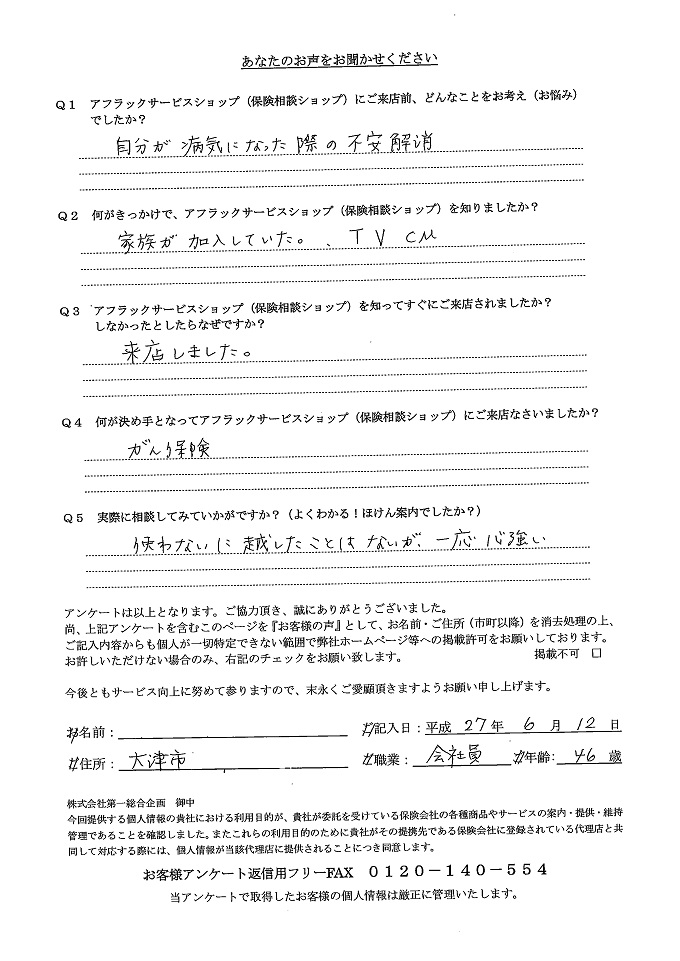 あなたのお声をお聞かせください
Q1 アフラックサービスショップ（保険相談ショップ）にご来店前、どんなことをお考え（お悩み）
でしたか？
自分が病気になった際の不安解消
Q2 何がきっかけで、アフラックサービスショップ（保険相談ショップ）を知りましたか？
家族が加入していた。、TV CM
Q3 アフラックサービスショップ（保険相談ショップ）を知ってすぐにご来店されましたか？
しなかったとしたらなぜですか？
来店しました。
Q4 何が決め手となってアフラックサービスショップ（保険相談ショップ）にご来店なさいましたか？
がん保険
Q5 実際に相談してみていかがですか？（よくわかる！ほけん案内でしたか？）
使わないに越したことはないが、一応心強い
アンケートは以上となります。ご協力頂き、誠にありがとうございました。
尚、上記アンケートを含むこのページを『お客様の声』として、お名前・ご住所（市町以降）を消去処理の上、
ご記入内容からも個人が一切特定できない範囲で弊社ホームページ等への掲載許可をお願いしております。
お許しいただけない場合のみ、右記のチェックをお願い致します。 掲載不可 □
今後ともサービス向上に努めて参りますので、末永くご愛顧頂きますようお願い申し上げます。
お名前： ご記入日：平成 27 年 6 月 12 日
ご住所： 大津市 ご職業： 会社員 ご年齢： 46 歳
株式会社第一総合企画 御中
今回提供する個人情報の貴社における利用目的が、貴社が委託を受けている保険会社の各種商品やサービスの案内・提供・維持
管理であることを確認しました。またこれらの利用目的のために貴社がその提携先である保険会社に登録されている代理店と共
同して対応する際には、個人情報が当該代理店に提供されることにつき同意します。
お客様アンケート返信用フリーFAX 0120-140-554
当アンケートで取得したお客様の個人情報は厳正に管理いたします。